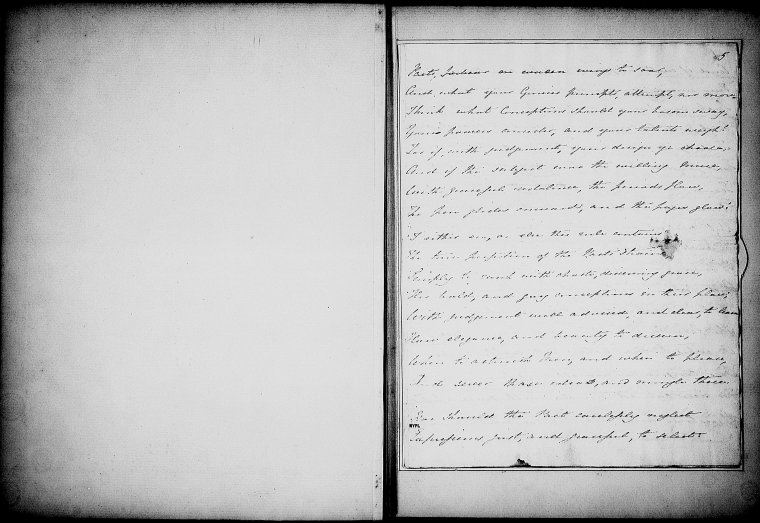 5
Poets, forbear on wings to soar,
And what your Genius prompts, attempt, no more.
Think what Conceptions should your bosom sway,
Your powers consider, and your talents weigh!
For if, with judgment, your design ye choose,
And if the subject the willing Muse,
With graceful the periods flow,
The pen glides onward, and the pages glow!
I either err, or else this rule contains
The true perfection of the Poet's Strains
Simply to with chaste, discerning grace,
The bold, and gay conceptions in their place;
With judgment well advised, and clear, to learn
How elegance, and beauty to discern,
When to astonish Men, and when to please,
to sever those ideas, and mingle these.
Nor should the Poet carelessly neglect
Expressions just, and graceful, to select
NYPL